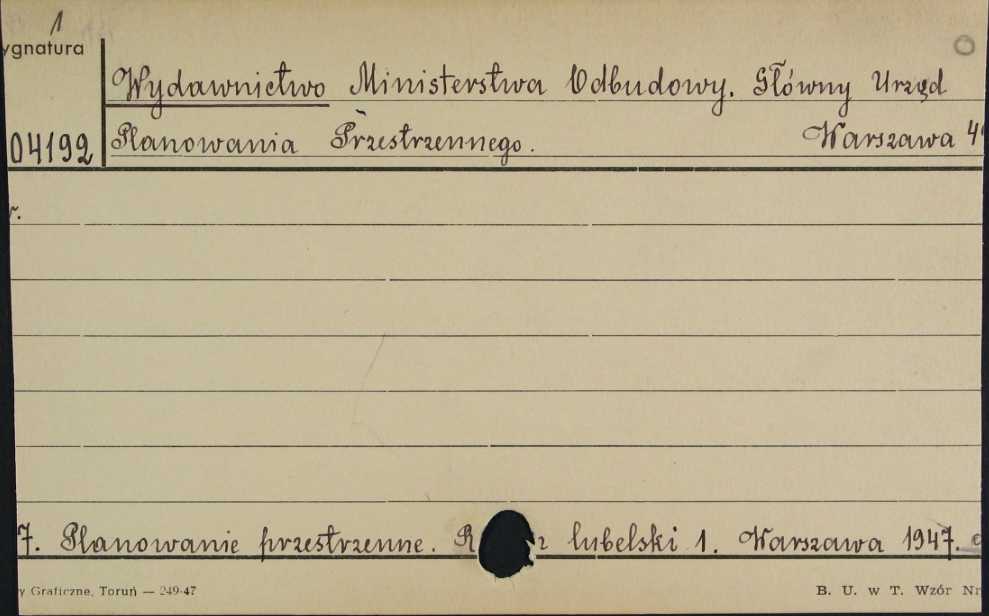 1
ygnatura
Wydawnictwo Ministerstwa Odbudowy. Główny Urząd
04192 Planowania Przestrzennego. Warszawa 4
r.
7. Planowanie przestrzenne. lubelski 1. Warszawa 1947.
y Graficzne, Toruń — 249-47 B. U. w T. Wzór Nr